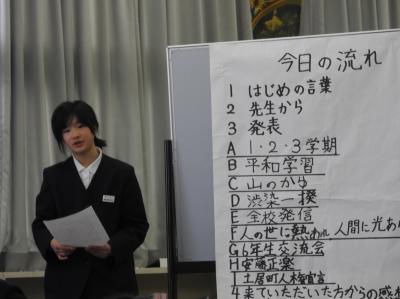 今日の流れ
1 はじめの言葉
2 先生から
3 発表
A 1・2・3学期
B 平和学習
C 山のかゆ
D 渋染一揆
E 全校発信
F 人の世に熱われ 人間に光あ
G 6年生交流会
H 安藤正楽
I 土居町人権宣言
4 来ていただいた方からの感